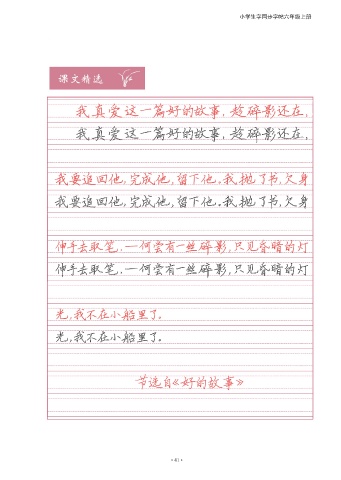 小学生字同步字帖六年级上册
课文精选
我真爱这一篇好的故事，趁碎影还在，
我真爱这一篇好的故事，趁碎影还在，
我要追回他，完成他，留下他。我抛了书，欠身
我要追回他，完成他，留下他。我抛了书，欠身
伸手去取笔，—何尝有一丝碎影，只见昏暗的灯
伸手去取笔，—何尝有一丝碎影，只见昏暗的灯
光，我不在小船里了。
光，我不在小船里了。
节选自《好的故事》